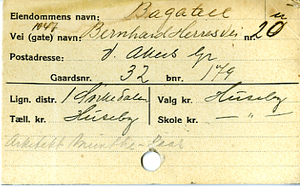 Eiendommens navn: Bagatell
1947
Vei (gate) navn: Bernhard Herresvei nr. 20
Postadresse: V. Aker Gr
Gaardsnr. 32 bnr. 179
Lign. distr. 1 Sørkedalen Valg kr. Huseby
Tæll. kr. Huseby Skole kr. — " —
Arkitekt Munthe-Kaas